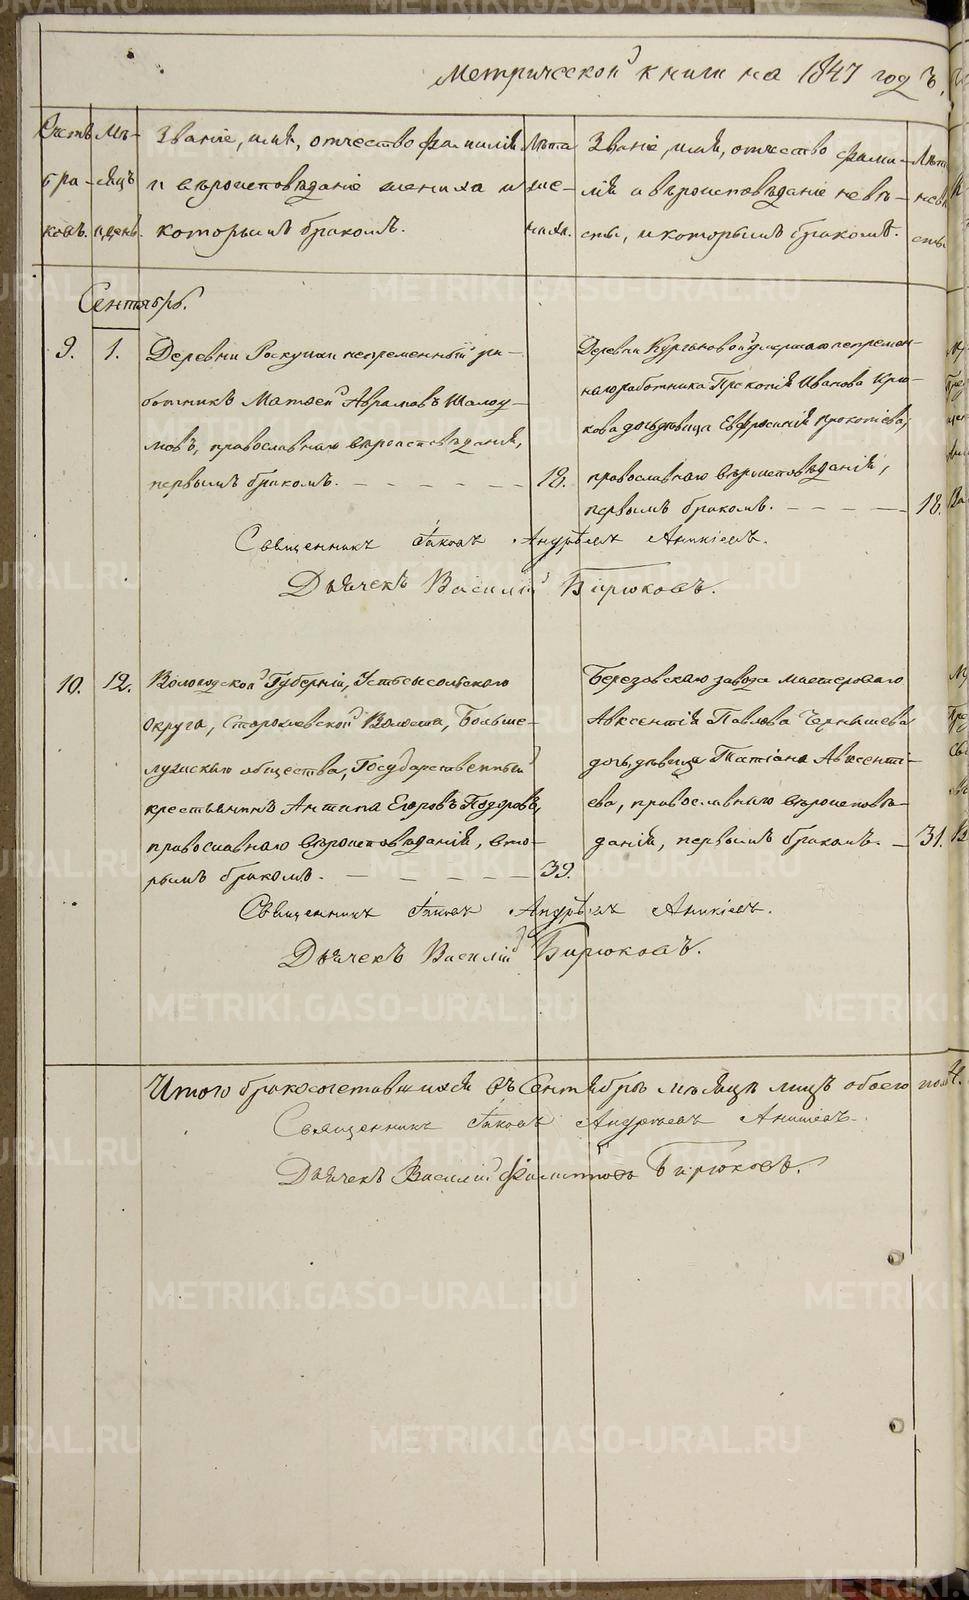 Метрической книги на 1847 годъ,
Счетъ бра-ковъ.
Мѣ-сяцъ и день.
Званіе, имя, отчество фамилія
и вѣроисповѣданіе жениха и
которымъ бракомъ.
Лѣта
же-
ниха.
Званіе, имя, отчество фами-
лія и вѣроисповѣданіе невѣ-
сты, и которымъ бракомъ.
Сентябрь.
9. 1.
Деревни Роскухи непременный ра-
ботникъ Матвей Аврамовъ Шалоу-
мовъ, православнаго вѣроисповѣданія,
первымъ бракомъ. 18.
Деревни Кургановой умершаго непремен-
наго работника Прокопія Иванова Крю-
кова дочь, девица Евфросинія Прокопіева,
православнаго вѣроисповѣданія,
первымъ бракомъ. 18.
Священникъ Іаковъ Андрѣевъ Аникіевъ.
Дьячекъ Василій Бирюковъ.
10. 12.
Вологодской Губерніи, Устьсысольскаго
округа, Сторожевской Волости, Больше-
лугскаго общества, Государственный
крестьянинъ Антипа Егоровъ Подоровъ,
православнаго вѣроисповѣданія, вто-
рымъ бракомъ. 39.
Березовскаго завода мастероваго
Авксентія Павлова Чернышева
дочь, дѣвица Татіана Авксенті-
ева, православнаго вѣроисповѣ-
данія, первымъ бракомъ. 31.
Священникъ Іаковъ Андрѣевъ Аникіевъ.
Дьячекъ Василій Бирюковъ.
Итого бракосочетавшихся въ Сентябрѣ мѣсяцѣ лицъ обоего пола 4.
Священникъ Іаковъ Андреевъ Аникіевъ.
Дьячекъ Василій Филиповъ Бирюковъ.
METRIKI.GASO-URAL.RU